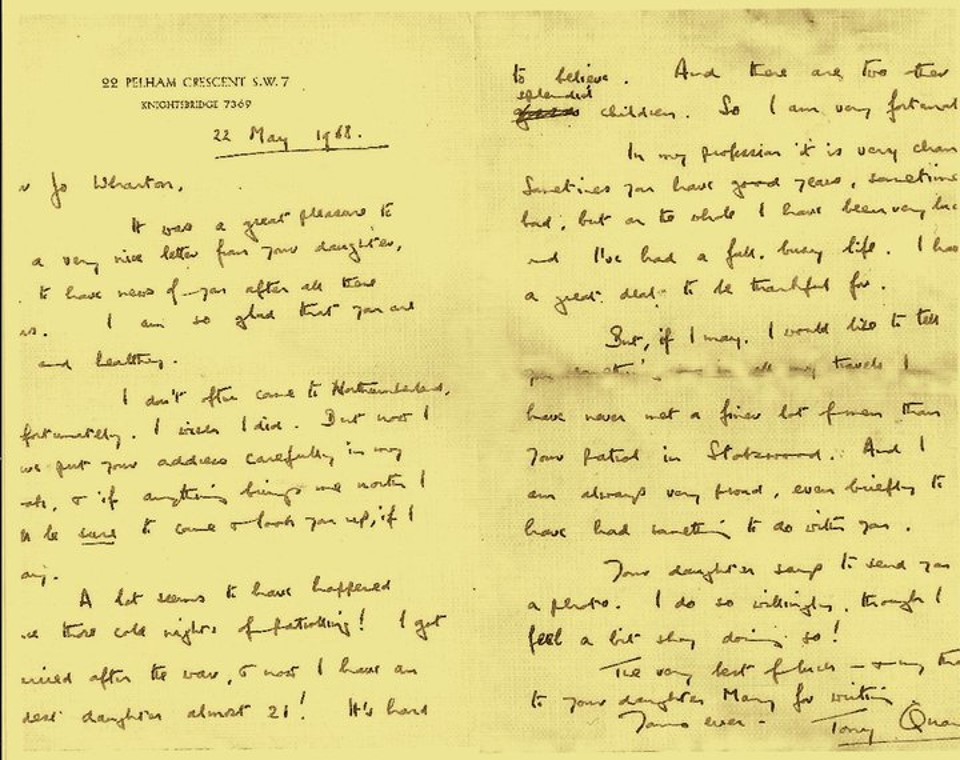 22 PELHAM CRESCENT S.W.7
KNIGHTSBRIDGE 7369
22 May 1968.
Jo Wharton,
It was a great pleasure to
a very nice letter from your daughter,
to have news of you after all these
rs. I am so glad that you are
and healthy.
I don't often come to Northumberland,
fortunately. I wish I did. But now I
ve put your address carefully in my
, & if anything brings me north I
ll be sure to come & look you up, if I
ay.
A lot seems to have happened
ce those cold nights of patrolling! I got
rried after the war, & now I have an
dest daughter almost 21! It's hard
to believe. And there are two other
splendid
children. So I am very fortunat
In my profession it is very chan
Sometimes you have good years, sometime
bad, but on the whole I have been very luc
and I've had a full, busy life. I hav
a great deal to be thankful for.
But, if I may, I would like to tell
you in all my travels I
have never met a finer lot of men than
your patrol in Stobswood. And I
am always very proud, even briefly to
have had something to do with you.
Your daughter says to send you
a photo. I do so willingly, though I
feel a bit shy doing so!
The very best of luck — & my tha
to your daughter Mary for writing
Yours ever -
Tony Qua